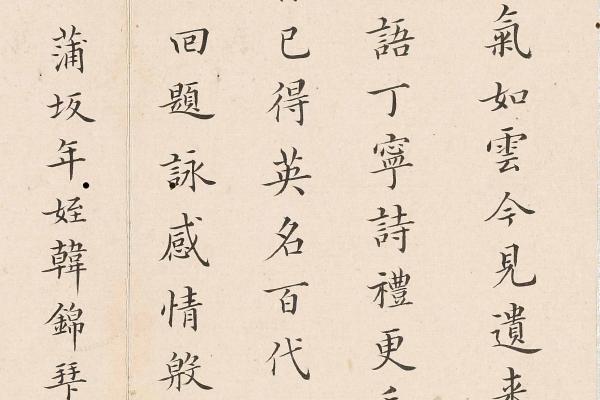 氣如雲今見遺来
語丁寧詩禮更
已得英名百代
囘題詠感情殷
蒲坂年姪韓錦琹